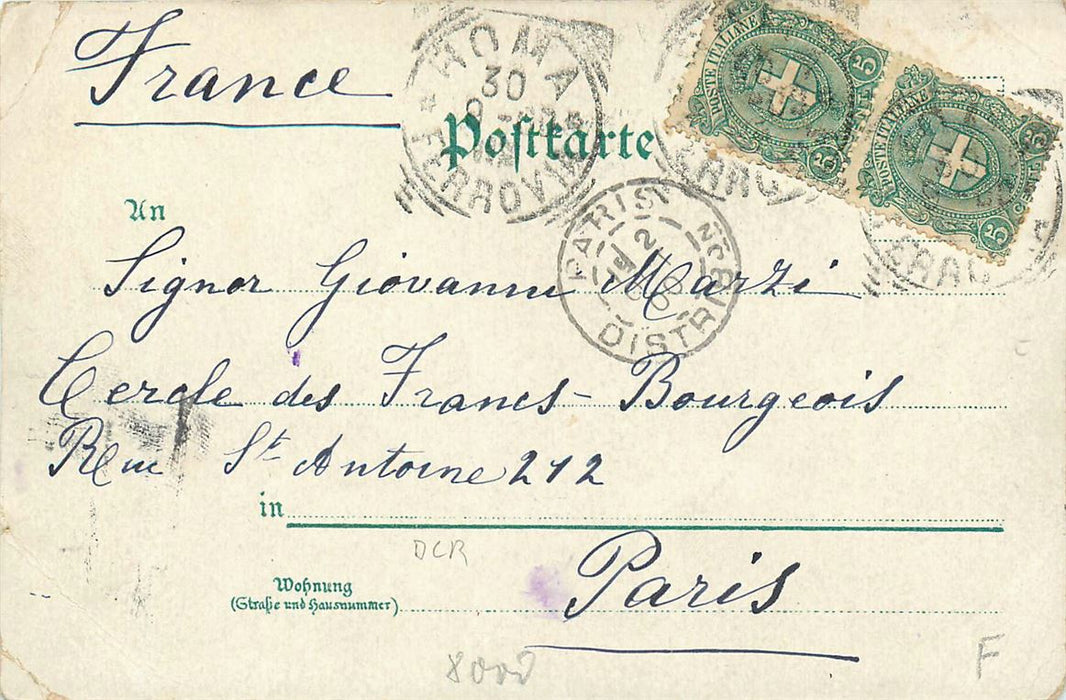 France
ROMA
30
FERROVIA
Postkarte
POSTE ITALIANE
5
5
POSTE ITALIANE
5
5
PARIS
2
DISTRIBON
An
Signor Giovanni Marzi
Cercle des Francs-Bourgeois
Rue St Antoine 212
in
DCR
Paris
Wohnung
(Straße und Hausnummer)
F